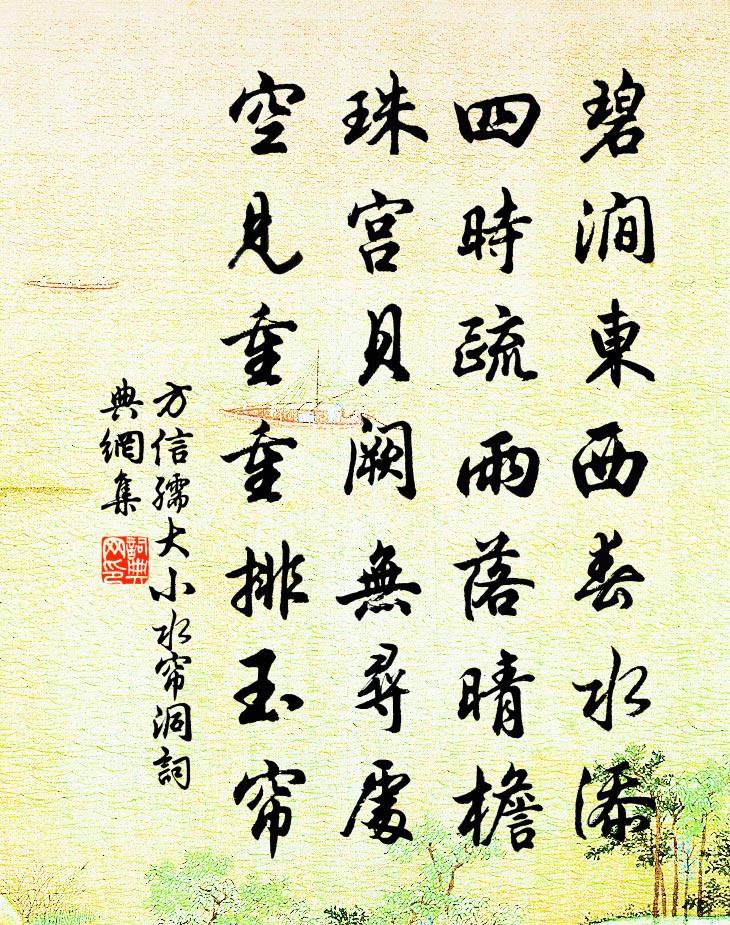 碧澗東西春水添
四時疏雨落晴檐
珠宮貝闕無尋處
空見重重排玉帘
方信孺大小水帘洞詞
典網集
詞典
网印